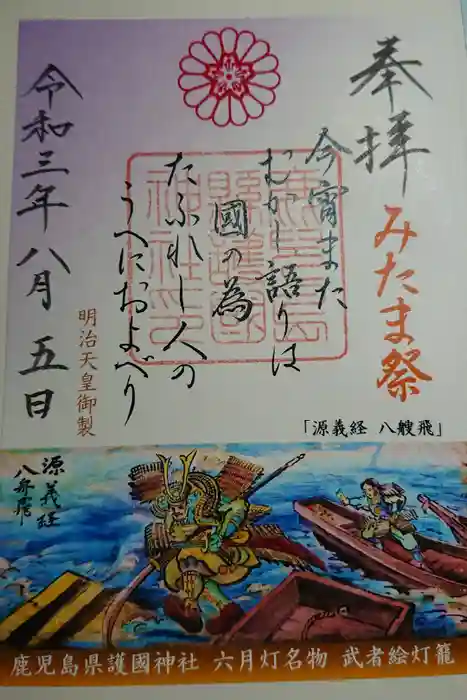 奉拝
みたま祭
今宵また
むかし語りは
國の為
たふれし人の
うへにおよべり
明治天皇御製
令和三年八月五日
「源義経 八艘飛」
源義経
八艘飛
鹿児島県護國神社 六月灯名物 武者絵灯籠